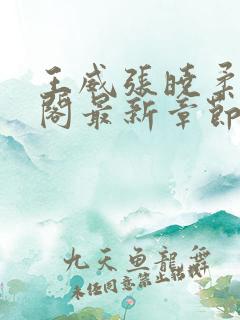 王威張曉柔
閣最新章節
九天魚龍舞
未經同意禁止轉載